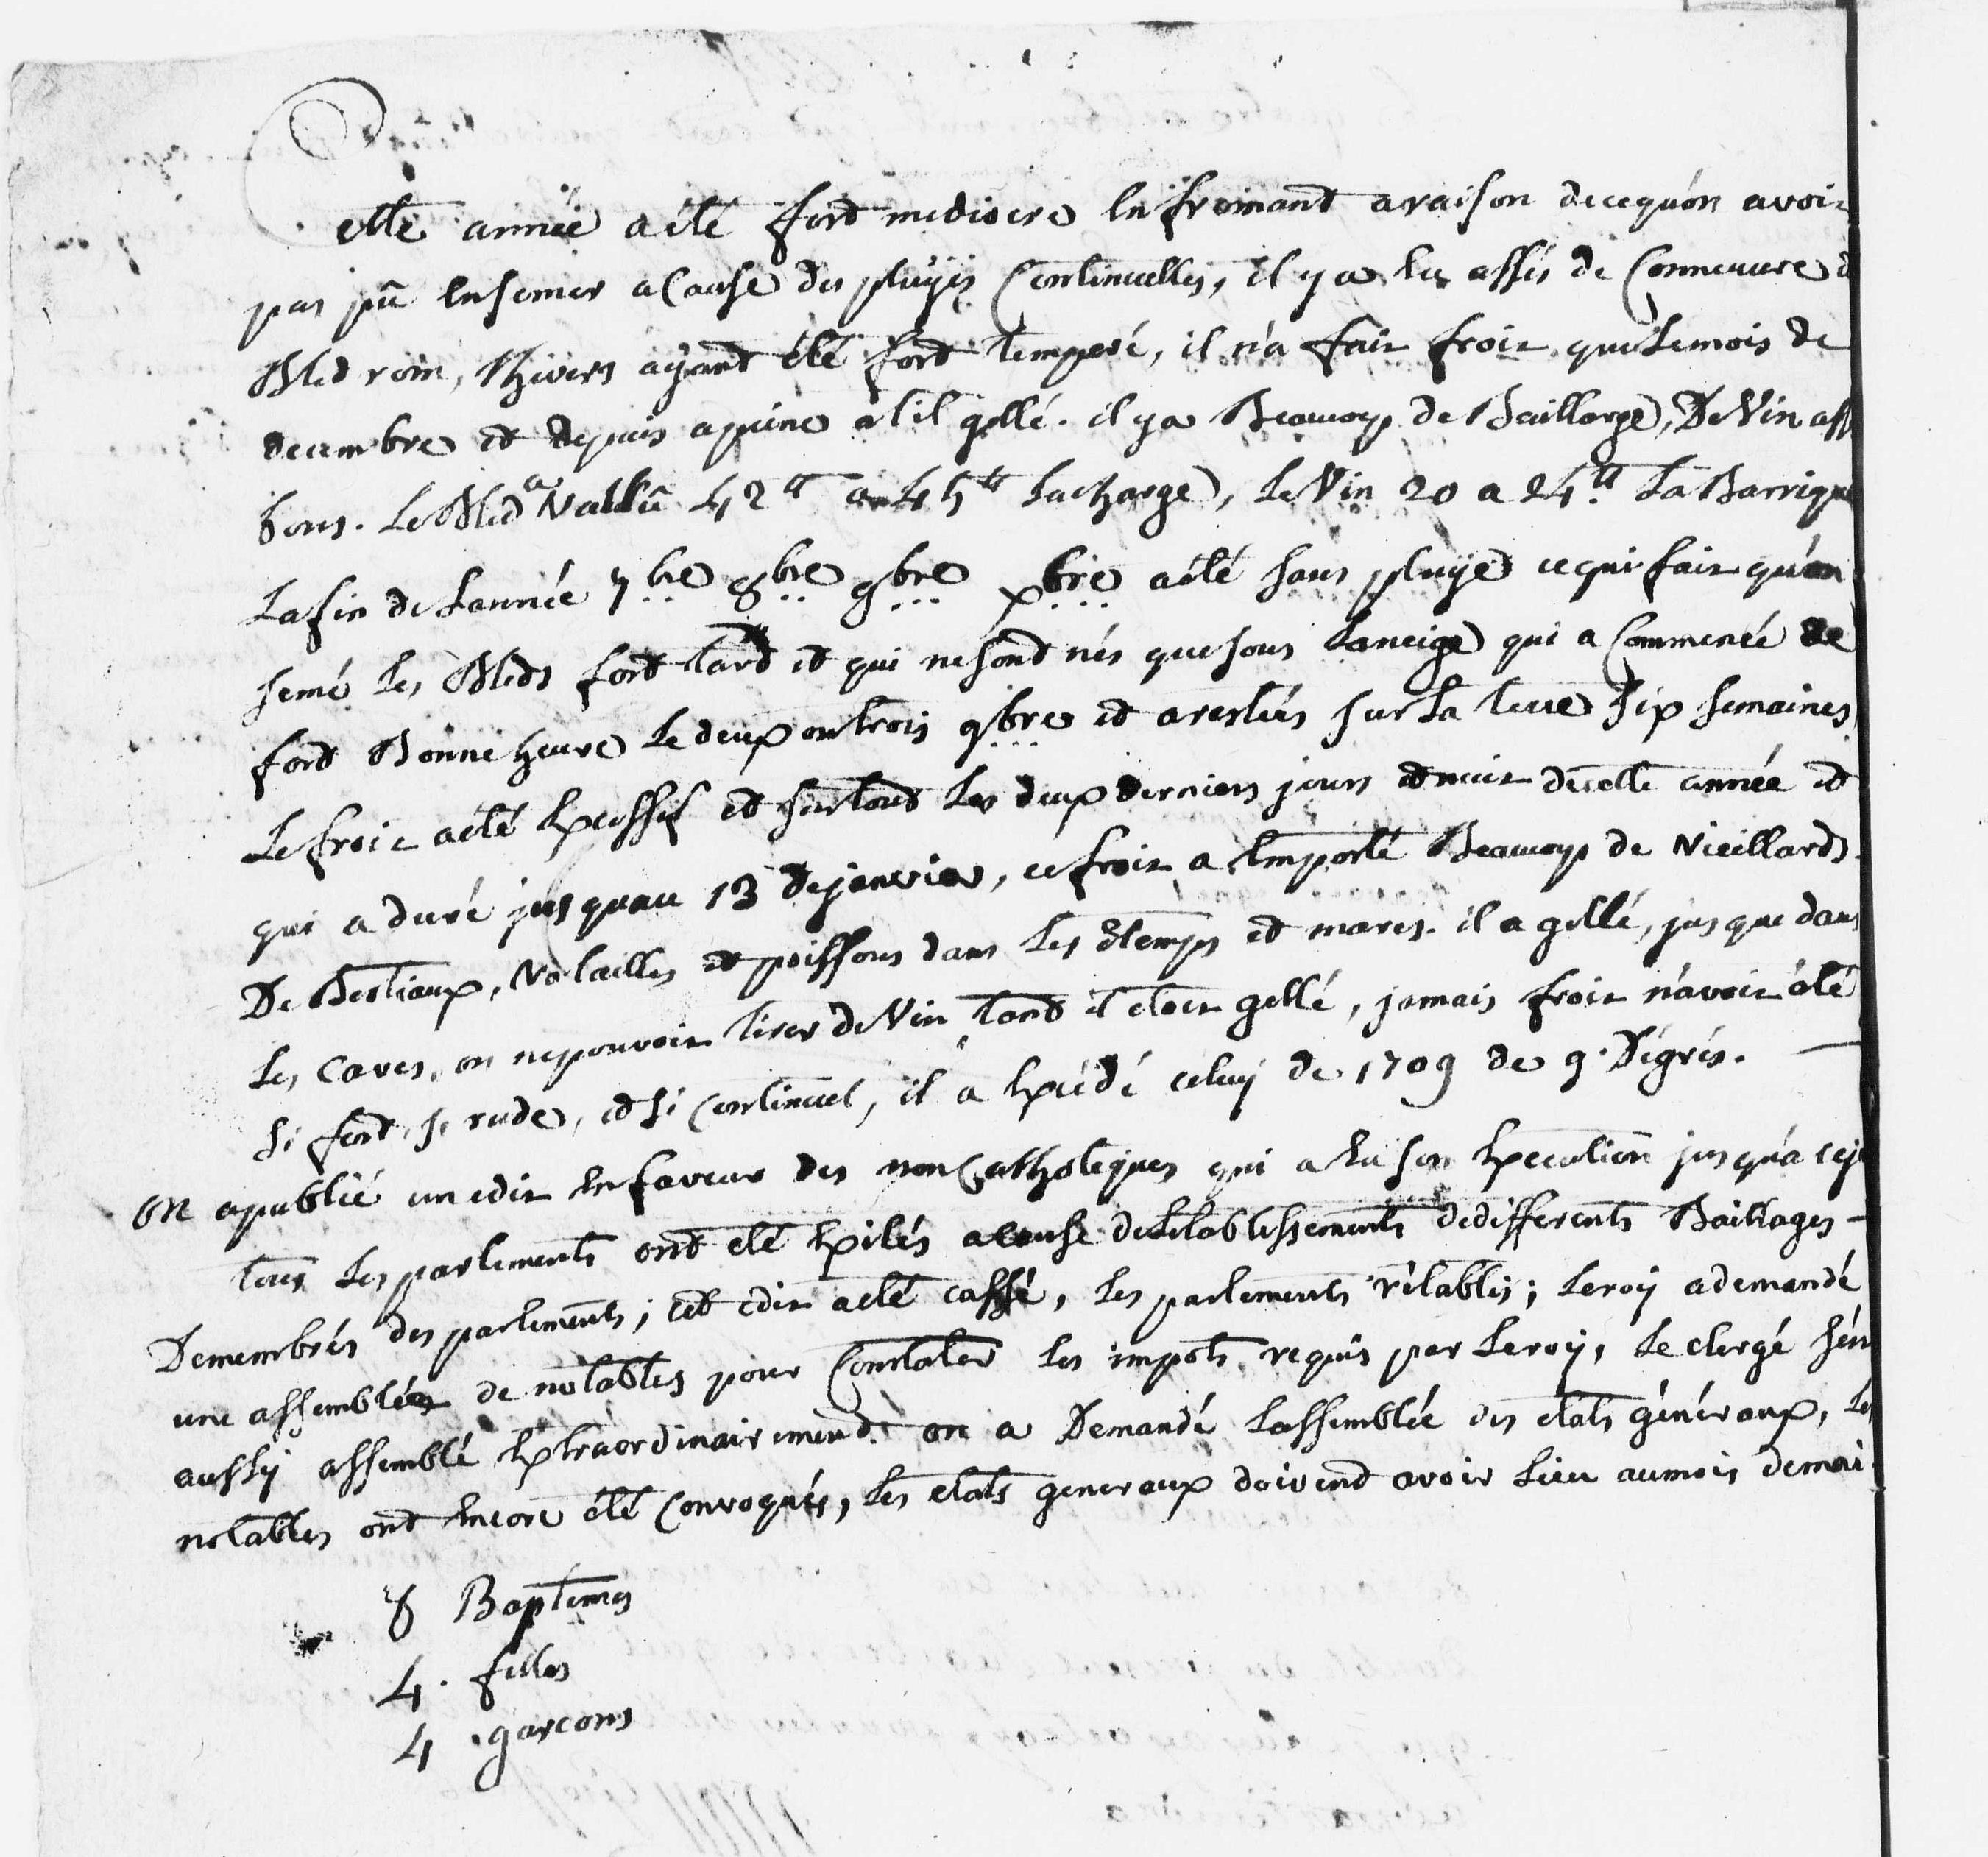 Cette année a été fort mediocre en fromant a raison de cequ'on avoit
pas pû ensemer a Cause des pluyes Continuelles, il y a eu assés de Conneuure d
Bled roin, l'hivers ayant été fort temperé, il n'a fait froit que Lemois de
decembre et depuis apeine a til gellé. il y a Beaucoup de Baillarge, De Vin ass
bons. Le Bled a Vallû 42 tt a 45 tt La charge, Le Vin 20 a 24 tt La Barrique
La fin de L'année 7bre 8bre 9bre xbre a été sans pluye ce qui fait qu'on
semé Les Bleds fort tard et qui ne sont nés que sous La neige qui a Commencée de
fort Bonne heure Le deux ou trois 9bre et a restées sur La terre six semaines
Le froit a été Excessif et surtout Les deux derniers jours et nuit de cette année et
qui a duré jusquau 13 de janvier, ce froit a Emporté Beaucoup de Vieillards
De Bestiaux, Volailles et poissons dans Les Etemps et mares. il a gellé, jusque dans
Les Caves, on ne pouvoit tirer de Vin tant il etoit gellé, jamais froit n'avoit été
si fort, si rude, et si Continuel, il a Excédé celuy de 1709 de 9. Dégrés.
On a publié un edit en faveur des non Catholiques qui a eu son Execution jusqu'a cej
tous Les parlements ont eté Exilés a cause de Letablissements de differents Bailliages
Demembrés des parlements; cet edit a eté cassé, Les parlements rétablis; Le roy a demandé
une assemblées de notables pour Constater Les impots requis par Le roy, Le clergé s'en
aussy assemblé Extraordinairement. on a Demandé L'assemblée des etats généraux, Les
notables ont Encore été Convoqués, Les etats generaux doivent avoir Lieu au mois de mai
8 Baptemes
4. filles
4. garcons